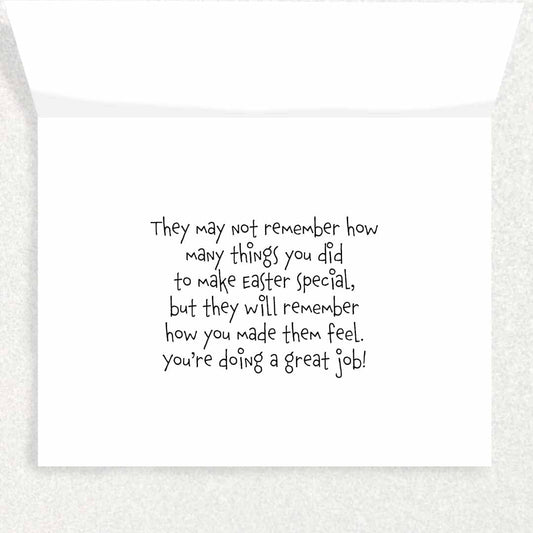 They may not remember how
many things you did
to make Easter special,
but they will remember
how you made them feel.
You're doing a great job!